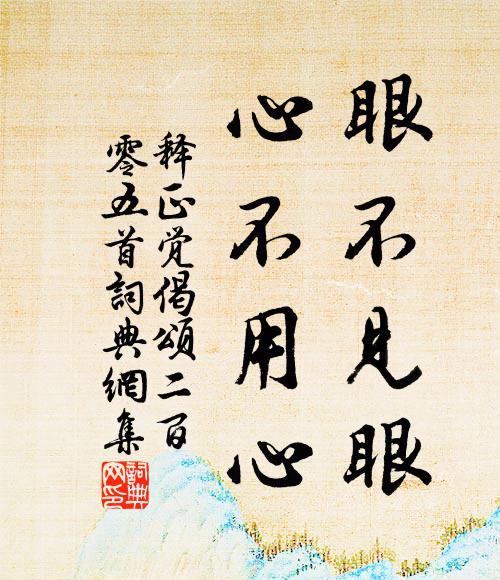 眼不见眼
心不用心
释正觉偈頌二百
零五首詞典網集
詞典
网印